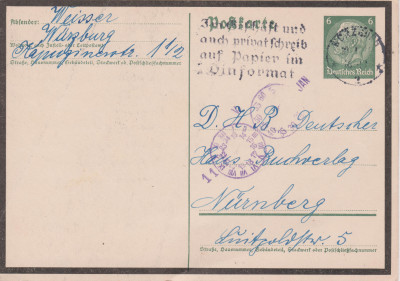 Absender: Weisser
Würzburg
Wohnort, auch Zustell- oder Leitpostamt
Kapuzinerstr. 1 1/2
Straße, Hausnummer, Gebäudeteil, Stockwerk od. Postschließfachnummer
Postkarte
und
auch privat schreib
auf Papier im
Dinformat
6 6
Deutsches Reich
JAN
D. H. B. Deutscher
Haus Buchverlag
Nürnberg
Luitpoldstr. 5
Straße, Hausnummer, Gebäudeteil, Stockwerk oder Postschließfachnummer